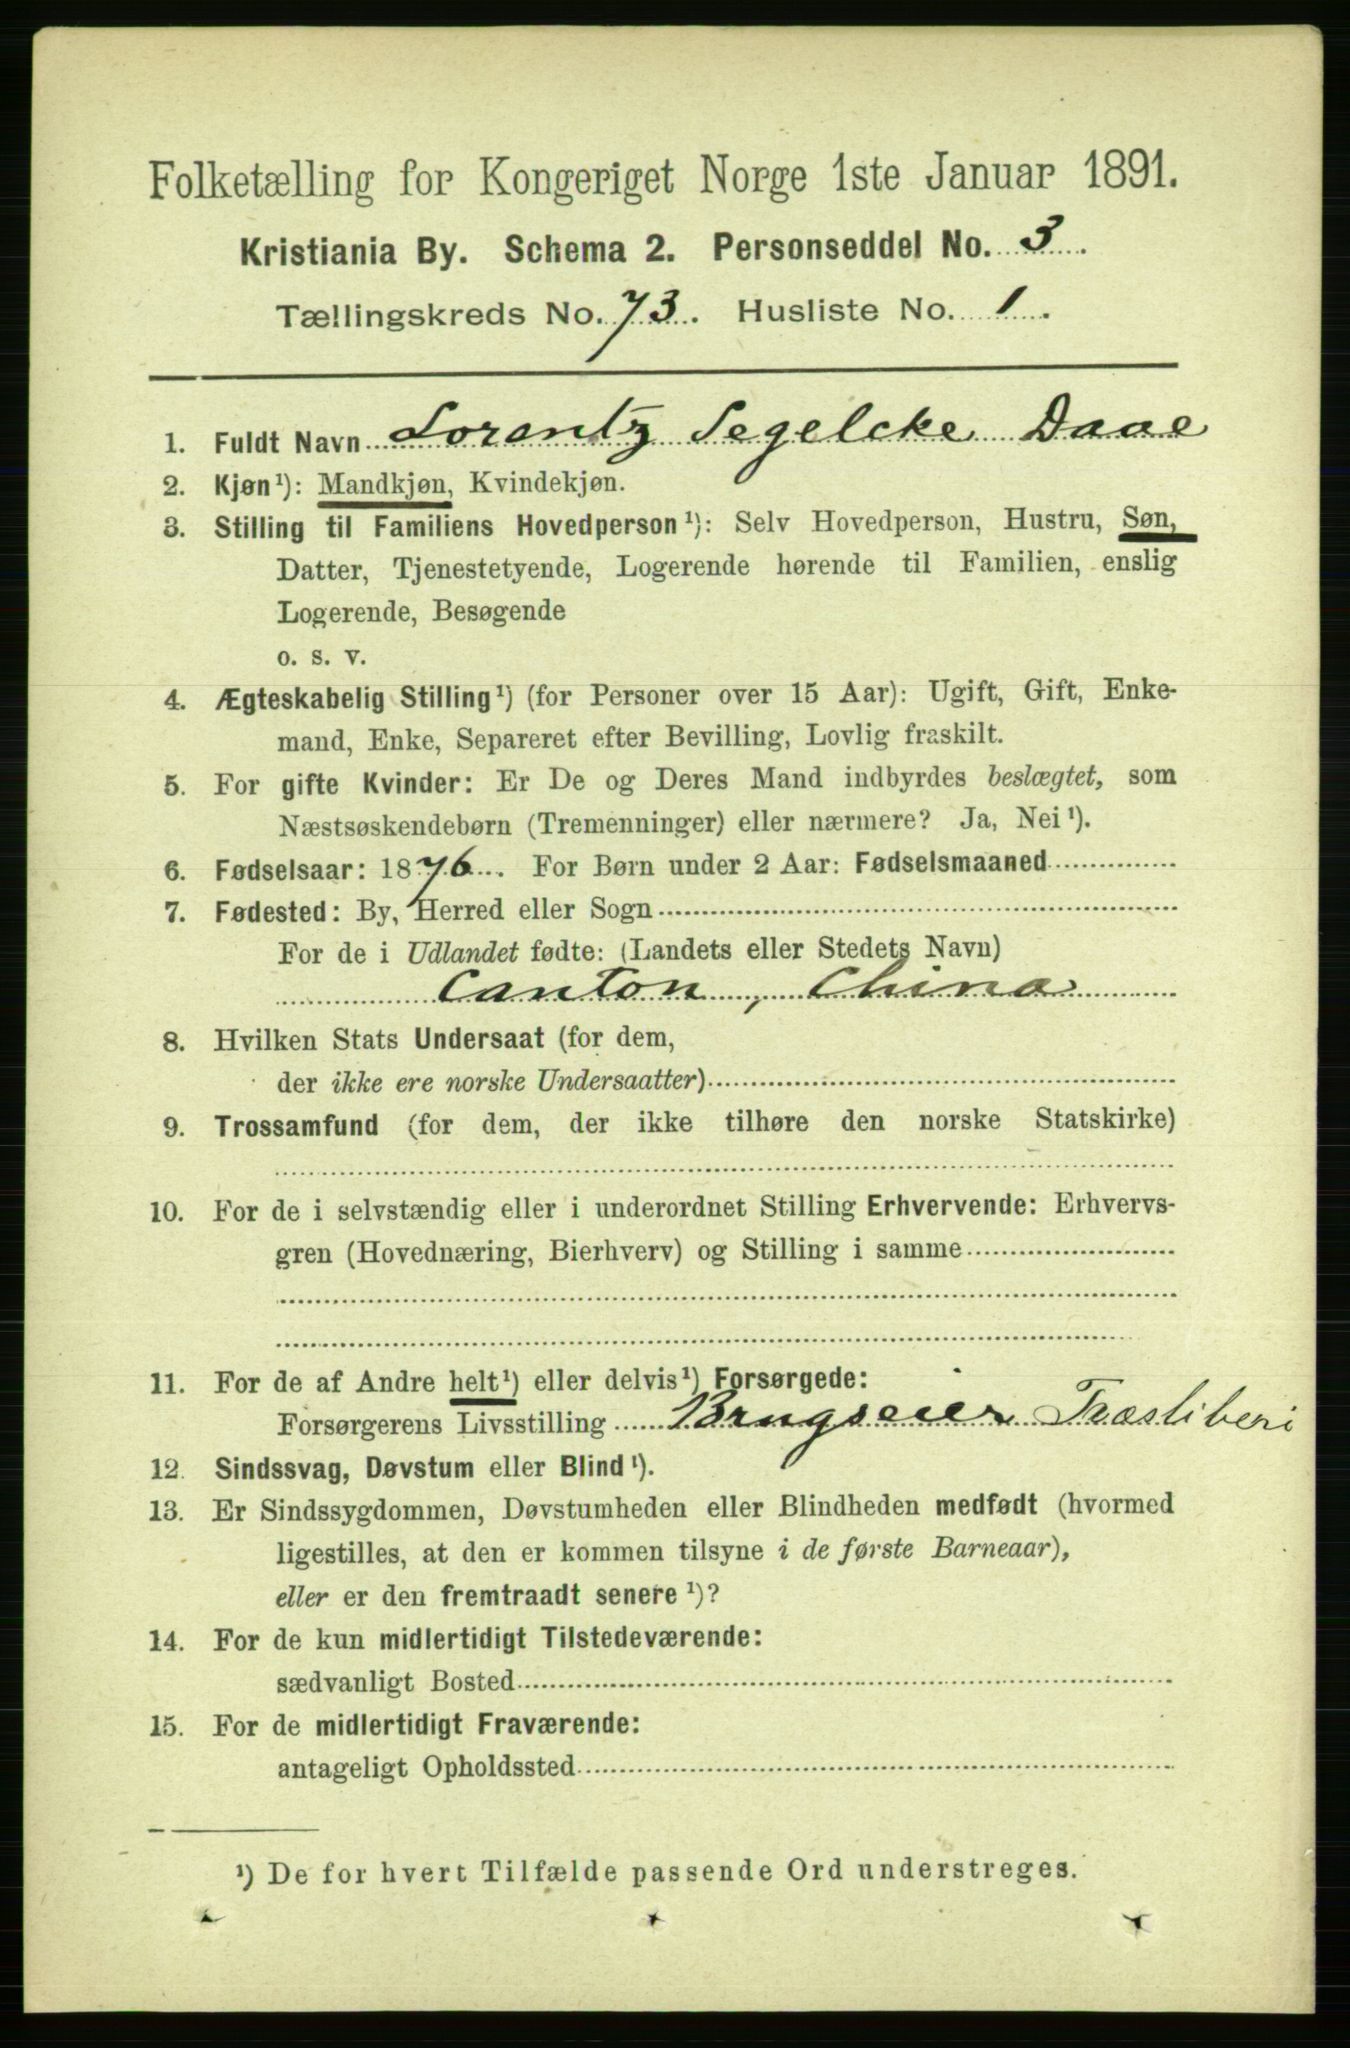 Folketælling for Kongeriget Norge 1ste Januar 1891.
Kristiania By. Schema 2. Personseddel No. 3.
Tællingskreds No. 73. Husliste No. 1.
1. Fuldt Navn Lorentz Segelcke Daae
2. Kjøn¹): Mandkjøn, Kvindekjøn.
3. Stilling til Familiens Hovedperson¹): Selv Hovedperson, Hustru, Søn,
Datter, Tjenestetyende, Logerende hørende til Familien, enslig
Logerende, Besøgende
o. s. v.
4. Ægteskabelig Stilling¹) (for Personer over 15 Aar): Ugift, Gift, Enke-
mand, Enke, Separeret efter Bevilling, Lovlig fraskilt.
5. For gifte Kvinder: Er De og Deres Mand indbyrdes beslægtet, som
Næstsøskendebørn (Tremenninger) eller nærmere? Ja, Nei¹).
6. Fødselsaar: 1876. For Børn under 2 Aar: Fødselsmaaned
7. Fødested: By, Herred eller Sogn
For de i Udlandet fødte: (Landets eller Stedets Navn)
Canton, China
8. Hvilken Stats Undersaat (for dem,
der ikke ere norske Undersaatter)
9. Trossamfund (for dem, der ikke tilhøre den norske Statskirke)
10. For de i selvstændig eller i underordnet Stilling Erhvervende: Erhvervs-
gren (Hovednæring, Bierhverv) og Stilling i samme
11. For de af Andre helt¹) eller delvis¹) Forsørgede:
Forsørgerens Livsstilling Brugseier Træsliberi
12. Sindssvag, Døvstum eller Blind¹).
13. Er Sindssygdommen, Døvstumheden eller Blindheden medfødt (hvormed
ligestilles, at den er kommen tilsyne i de første Barneaar),
eller er den fremtraadt senere¹)?
14. For de kun midlertidigt Tilstedeværende:
sædvanligt Bosted
15. For de midlertidigt Fraværende:
antageligt Opholdssted
¹) De for hvert Tilfælde passende Ord understreges.